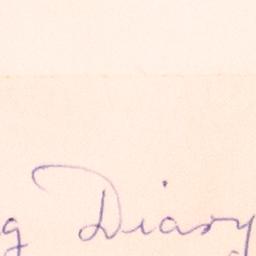 g Diary